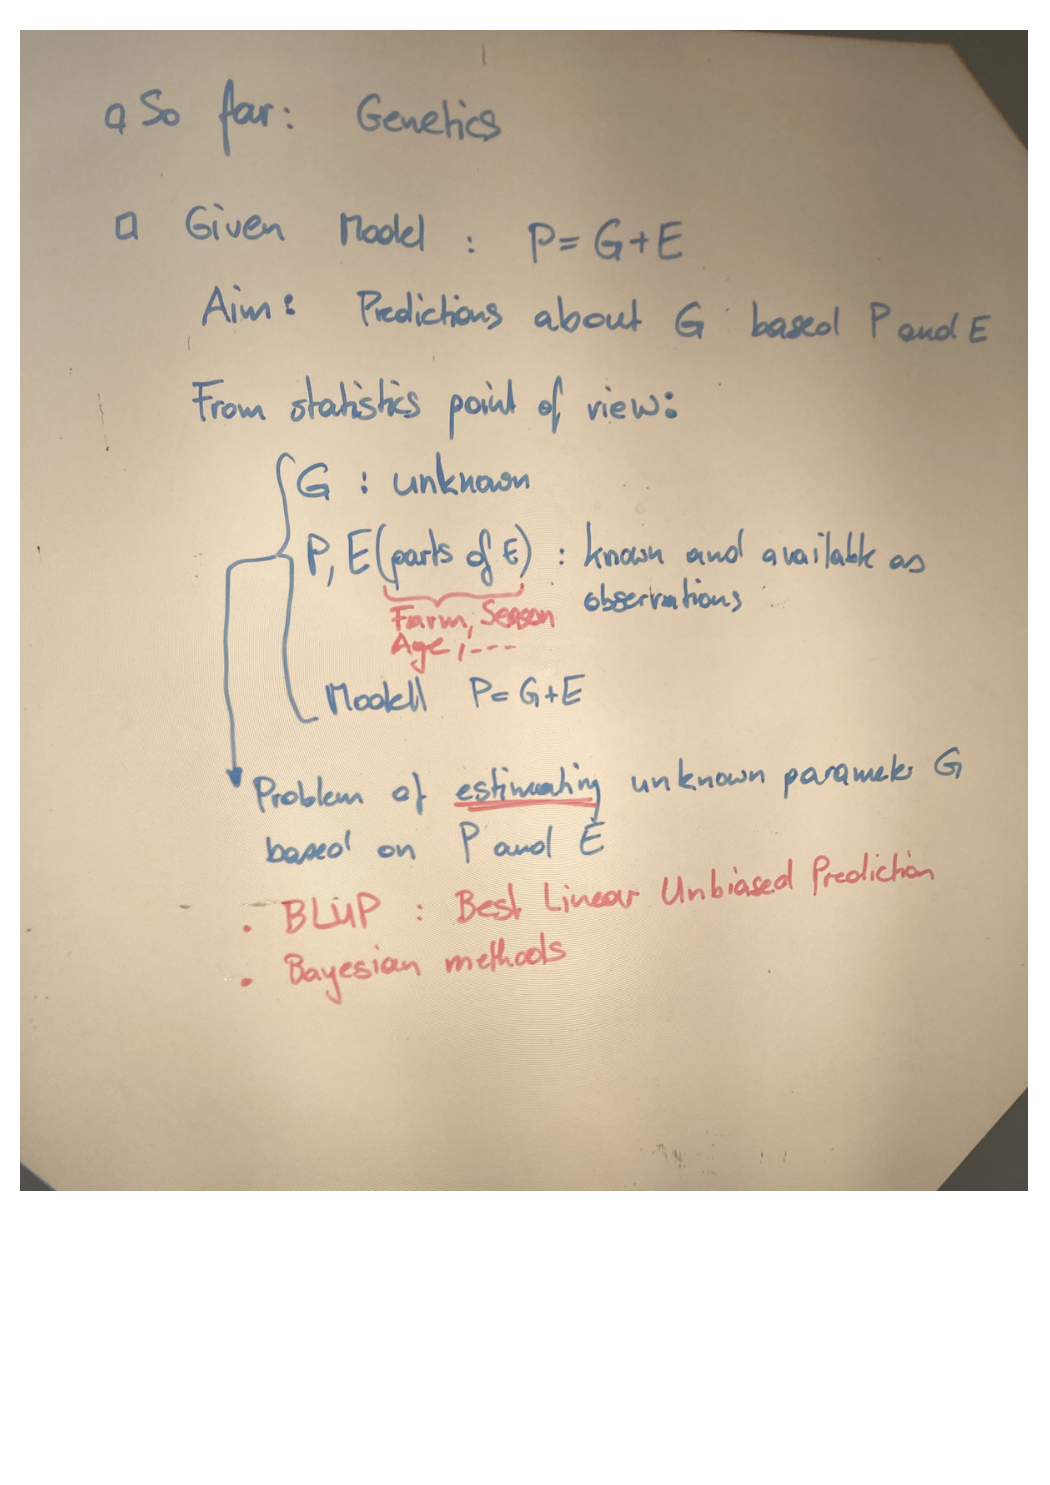 So far: Genetics
Given Model : P = G + E
Aim: Predictions about G based P and E
From statistics point of view:
G : unknown
P, E (parts of E) : known and available as
observations
Farm, Season
Age, ---
Modell P = G + E
Problem of estimating unknown parameter G
based on P and E
• BLUP : Best Linear Unbiased Prediction
• Bayesian methods